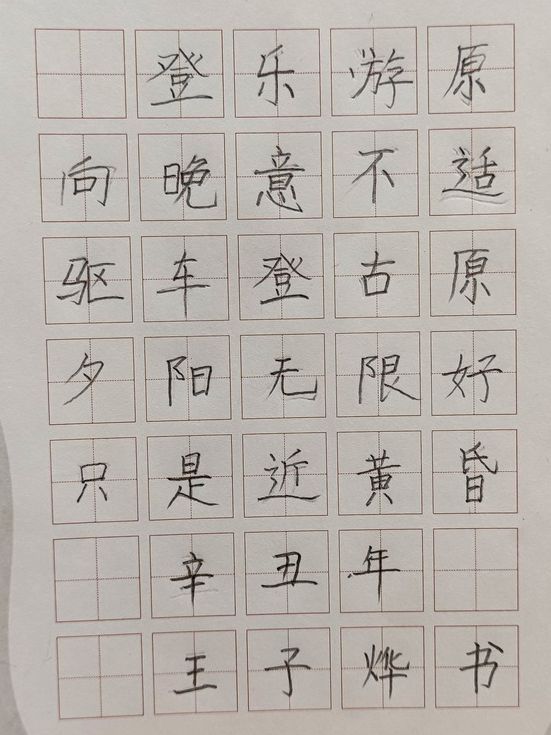 登乐游原
向晚意不适
驱车登古原
夕阳无限好
只是近黄昏
辛丑年
王子烨书